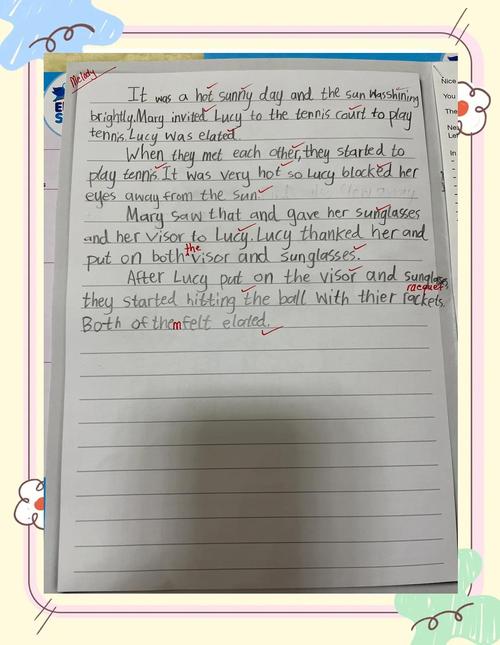 Melody
It was a hot sunny day and the sun was shining
brightly. Mary invited Lucy to the tennis court to play
tennis. Lucy was elated.
When they met each other, they started to
play tennis. It was very hot so Lucy blocked her
eyes away from the sun.
Mary saw that and gave her sunglasses
and her visor to Lucy. Lucy thanked her and
the
put on both visor and sunglasses.
After Lucy put on the visor and sunglasses
racquet
they started hitting the ball with thier rackets.
Both of them felt elated.
Nice
You
The
In
ES